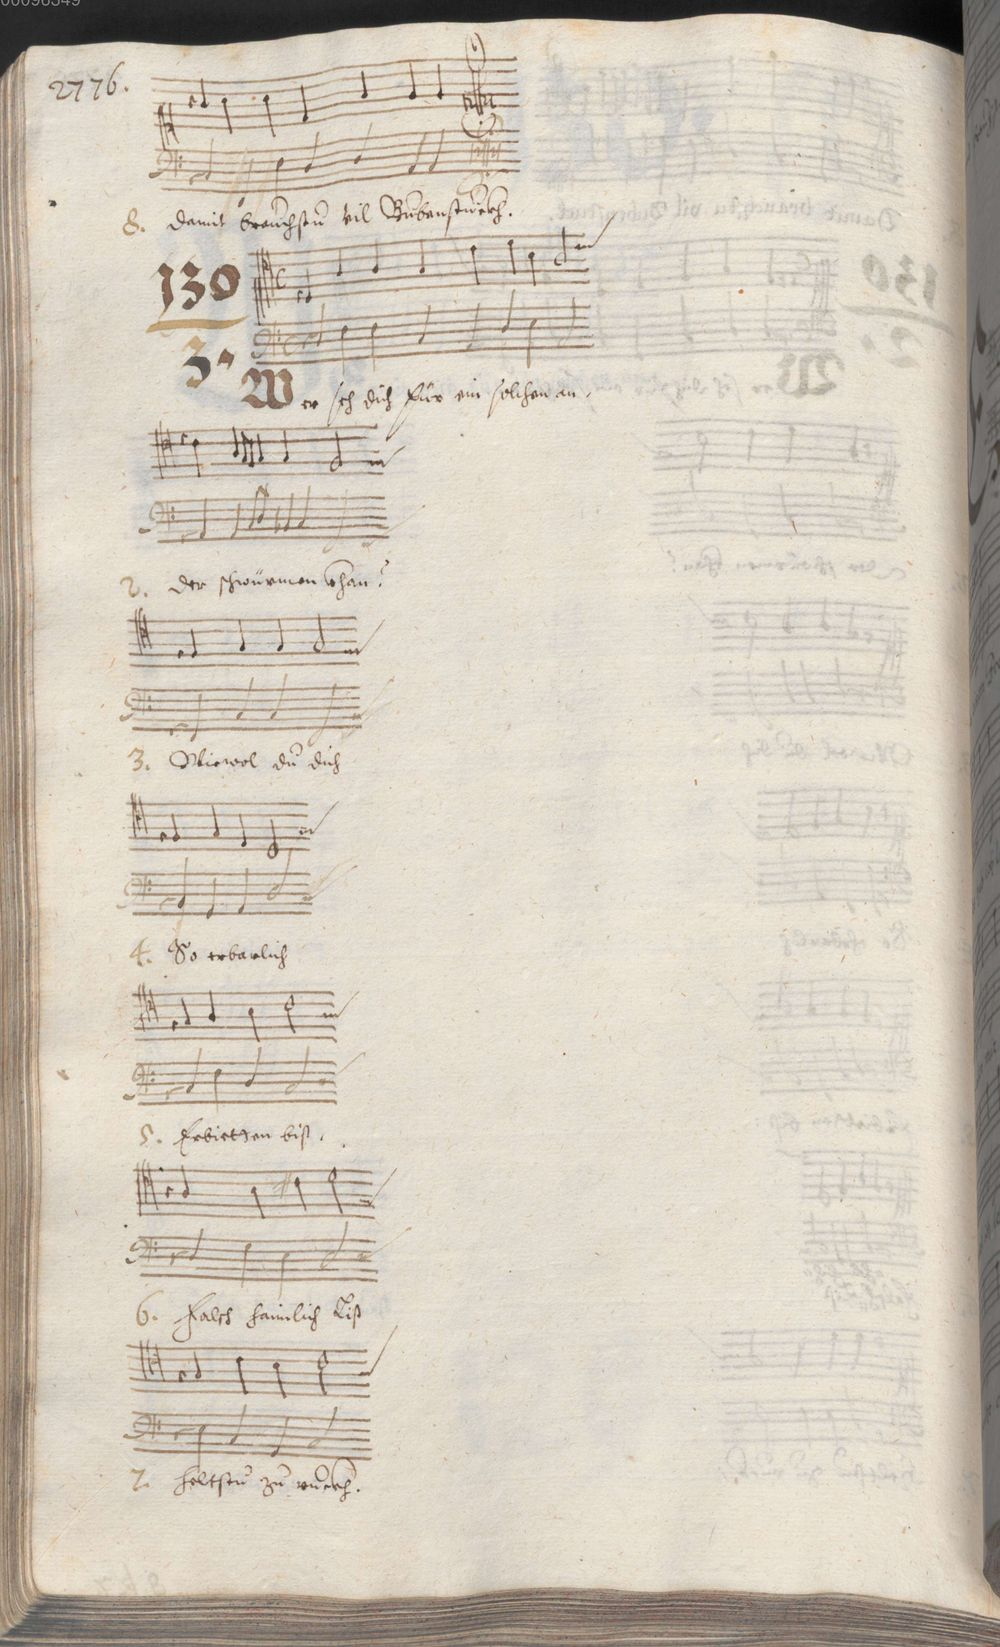 00098349
2776.
8. damit brauchstu vil Bubenstuckh.
130
3.
Wer seh dich für ein solchen an,
2. der schwürmen khan?
3. Wiewol du dich
4. So erbarlich
5. Erbietten bist,
6. Falsch haimlich List
7. heltstu zu ruckh.